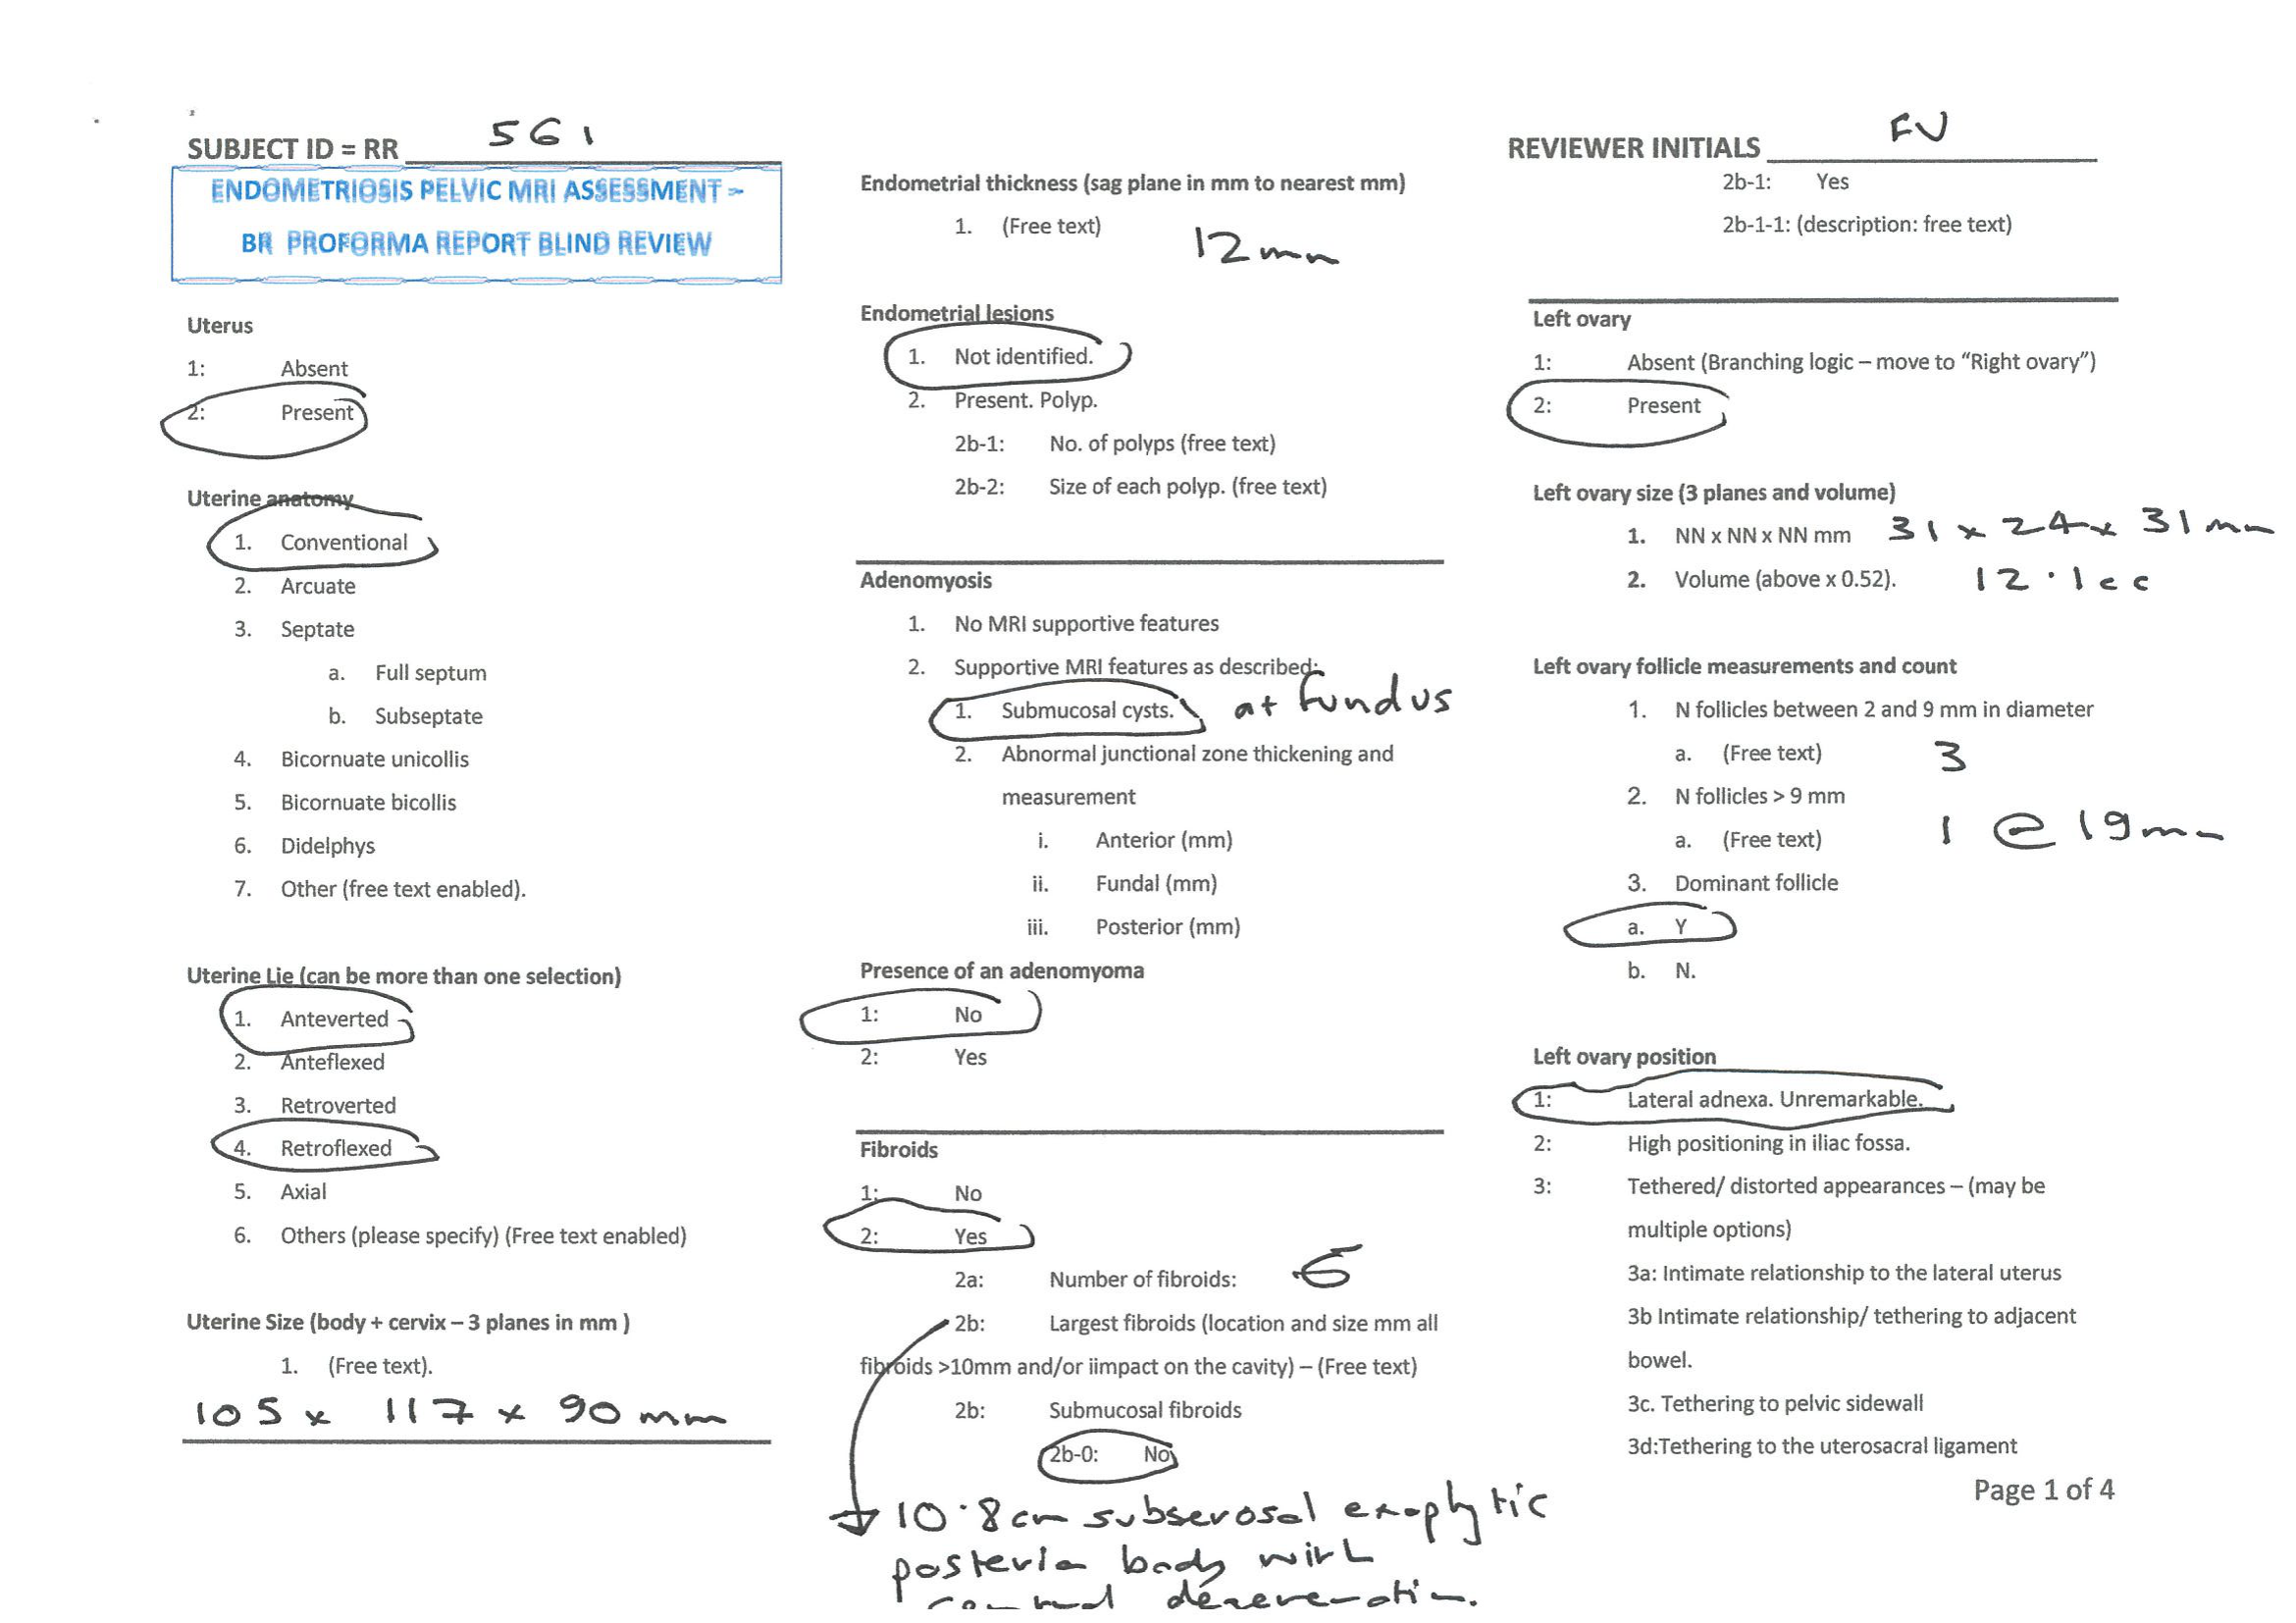 SUBJECT ID = RR 561
ENDOMETRIOSIS PELVIC MRI ASSESSMENT -
BR PROFORMA REPORT BLIND REVIEW
Uterus
1: Absent
2: Present
Uterine anatomy
1. Conventional
2. Arcuate
3. Septate
a. Full septum
b. Subseptate
4. Bicornuate unicollis
5. Bicornuate bicollis
6. Didelphys
7. Other (free text enabled).
Uterine Lie (can be more than one selection)
1. Anteverted
2. Anteflexed
3. Retroverted
4. Retroflexed
5. Axial
6. Others (please specify) (Free text enabled)
Uterine Size (body + cervix – 3 planes in mm )
1. (Free text).
105 x 117 x 90 mm
Endometrial thickness (sag plane in mm to nearest mm)
1. (Free text) 12mm
Endometrial lesions
1. Not identified.
2. Present. Polyp.
2b-1: No. of polyps (free text)
2b-2: Size of each polyp. (free text)
Adenomyosis
1. No MRI supportive features
2. Supportive MRI features as described:
1. Submucosal cysts. at fundus
2. Abnormal junctional zone thickening and
measurement
i. Anterior (mm)
ii. Fundal (mm)
iii. Posterior (mm)
Presence of an adenomyoma
1: No
2: Yes
Fibroids
1: No
2: Yes
2a: Number of fibroids:
2b: Largest fibroids (location and size mm all
fibroids >10mm and/or iimpact on the cavity) – (Free text)
2b: Submucosal fibroids
2b-0: No
10.8cm subserosal exophytic
posterior body with
central degeneration.
REVIEWER INITIALS FV
2b-1: Yes
2b-1-1: (description: free text)
Left ovary
1: Absent (Branching logic – move to “Right ovary”)
2: Present
Left ovary size (3 planes and volume)
1. NN x NN x NN mm 31 x 24 x 31mm
2. Volume (above x 0.52). 12.1cc
Left ovary follicle measurements and count
1. N follicles between 2 and 9 mm in diameter
a. (Free text) 3
2. N follicles > 9 mm
a. (Free text) 1 @ 19mm
3. Dominant follicle
a. Y
b. N.
Left ovary position
1: Lateral adnexa. Unremarkable.
2: High positioning in iliac fossa.
3: Tethered/ distorted appearances – (may be
multiple options)
3a: Intimate relationship to the lateral uterus
3b Intimate relationship/ tethering to adjacent
bowel.
3c. Tethering to pelvic sidewall
3d:Tethering to the uterosacral ligament
Page 1 of 4